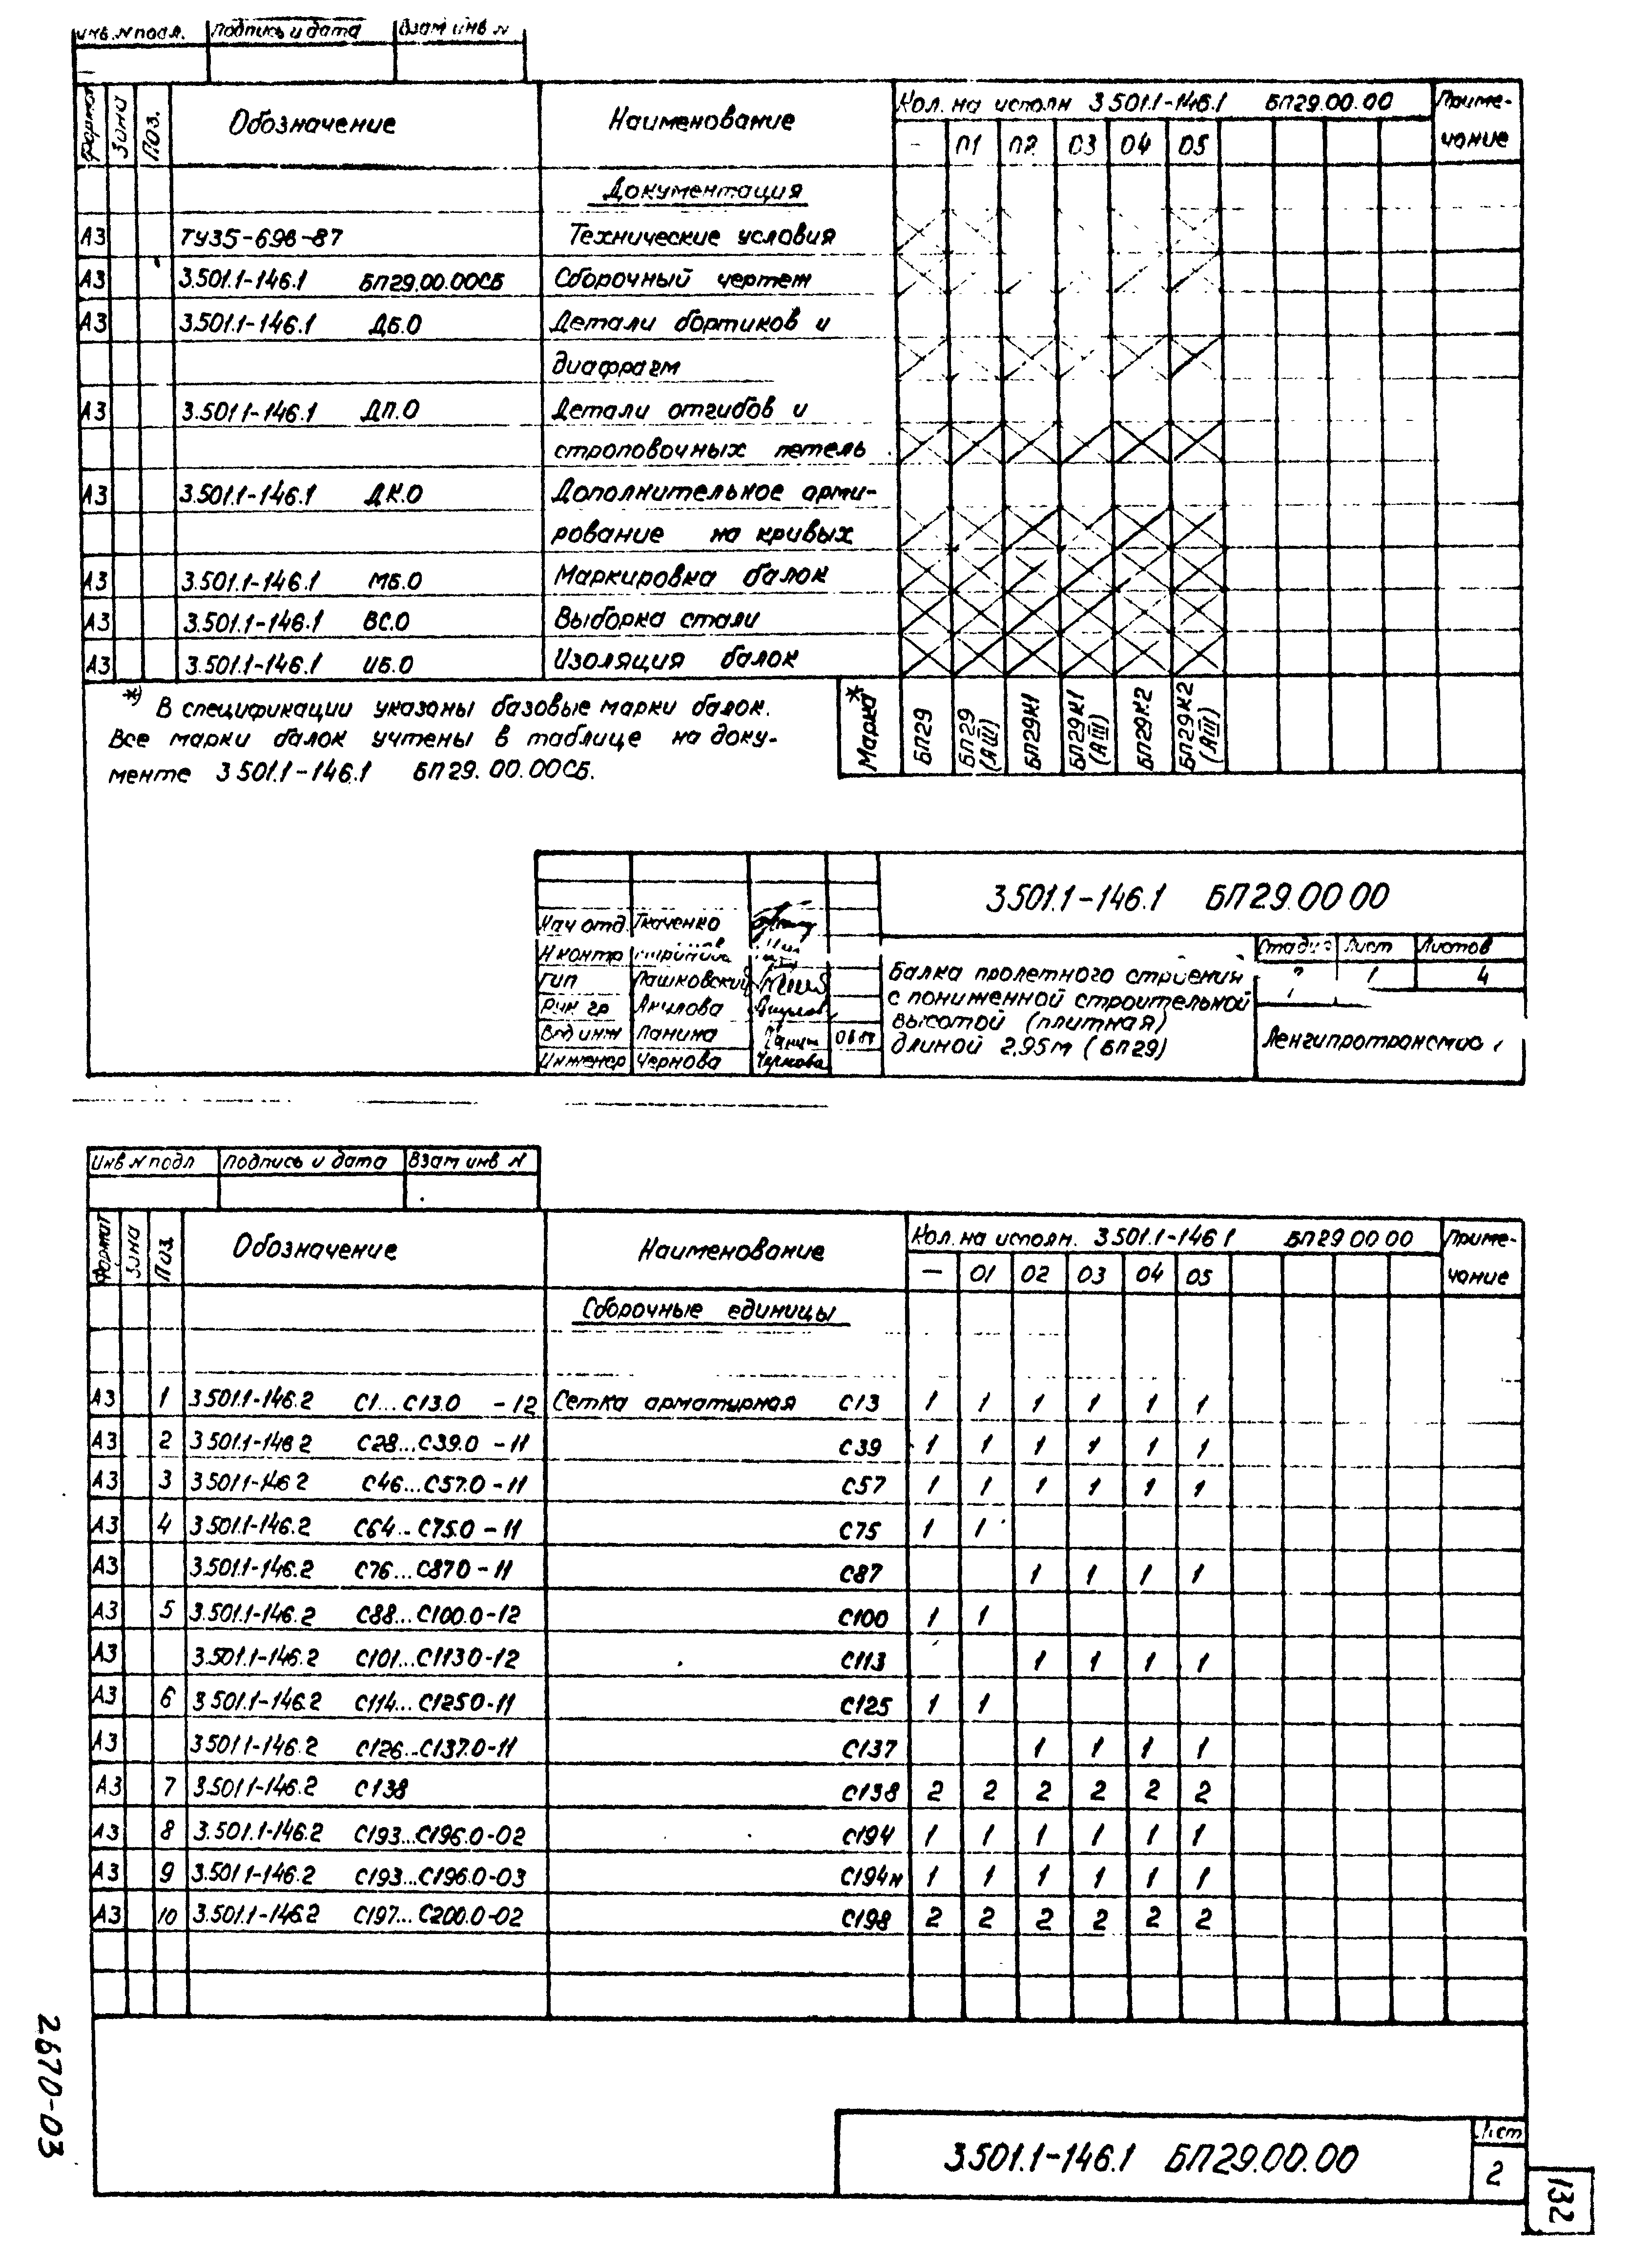 Инв. N подл. Подпись и дата Взам инв N
Формат Зона Поз. Обозначение Наименование Кол. на исполн 3.501.1-146.1 БП29.00.00 Приме-
чание
– 01 02 03 04 05
Документация
А3 ТУ35-698-87 Технические условия
А3 3.501.1-146.1 БП29.00.00СБ Сборочный чертеж
А3 3.501.1-146.1 ДБ.0 Детали бортиков и
диафрагм
А3 3.501.1-146.1 ДП.0 Детали отгибов и
строповочных петель
А3 3.501.1-146.1 ДК.0 Дополнительное арми-
рование на кривых
А3 3.501.1-146.1 МБ.0 Маркировка балок
А3 3.501.1-146.1 ВС.0 Выборка стали
А3 3.501.1-146.1 ИБ.0 Изоляция балок
Марка* БП29 БП29 (АIII) БП29К1 БП29К1 (АIII) БП29К2 БП29К2 (АIII)
*) В спецификации указаны базовые марки балок.
Все марки балок учтены в таблице на доку-
менте 3 501.1-146.1 БП29.00.00СБ.
3.501.1-146.1 БП29.00 00
Нач отд. Ткаченко
Н контр
ГИП Пашковский
Рук гр Акулова
Вед инж Панина
Инженер Чернова Чернова
Балка пролетного строения
с пониженной строительной
высотой (плитная)
длиной 2.95м (БП29)
Стадия Лист Листов
1 4
Ленгипротрансмост
Инв N подл Подпись и дата Взам инв N
Формат Зона Поз. Обозначение Наименование Кол. на исполн. 3.501.1-146 1 БП29 00 00 Приме-
чание
– 01 02 03 04 05
Сборочные единицы
А3 1 3.501.1-146.2 С1...С13.0 -12 Сетка арматурная С13 1 1 1 1 1 1
А3 2 3.501.1-146 2 С28...С39.0 -11 С39 1 1 1 1 1 1
А3 3 3.501.1-146 2 С46...С57.0 -11 С57 1 1 1 1 1 1
А3 4 3.501.1-146.2 С64...С75.0 -11 С75 1 1
А3 3.501.1-146.2 С76...С87.0 -11 С87 1 1 1 1
А3 5 3.501.1-146.2 С88...С100.0-12 С100 1 1
А3 3.501.1-146.2 С101...С113.0-12 С113 1 1 1 1
А3 6 3.501.1-146.2 С114...С125.0-11 С125 1 1
А3 3.501.1-146.2 С126...С137.0-11 С137 1 1 1 1
А3 7 3.501.1-146.2 С138 С138 2 2 2 2 2 2
А3 8 3.501.1-146.2 С193...С196.0-02 С194 1 1 1 1 1 1
А3 9 3.501.1-146.2 С193...С196.0-03 С194н 1 1 1 1 1 1
А3 10 3.501.1-146.2 С197...С200.0-02 С198 2 2 2 2 2 2
3.501.1-146.1 БП29.00.00
Лист
2
2670-03
132